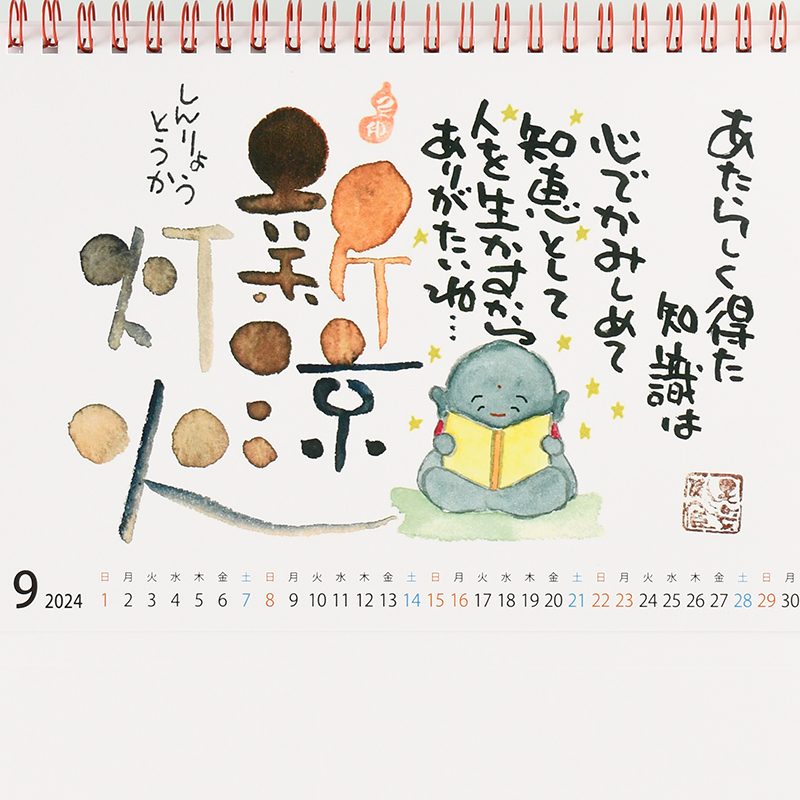 あたらしく得た
知識は
心でかみしめて
知恵として
人を生かすから
ありがたいね…
新涼
灯火
しんりょう
とうか
9 2024
日 月 火 水 木 金 土 日 月 火 水 木 金 土 日 月 火 水 木 金 土 日 月 火 水 木 金 土 日 月
1 2 3 4 5 6 7 8 9 10 11 12 13 14 15 16 17 18 19 20 21 22 23 24 25 26 27 28 29 30